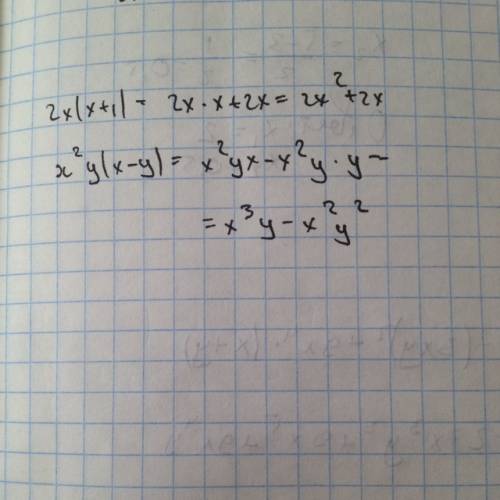 2x(x+1) = 2x·x+2x = 2x²+2x
x²y(x-y) = x²yx-x²y·y =
= x³y-x²y²